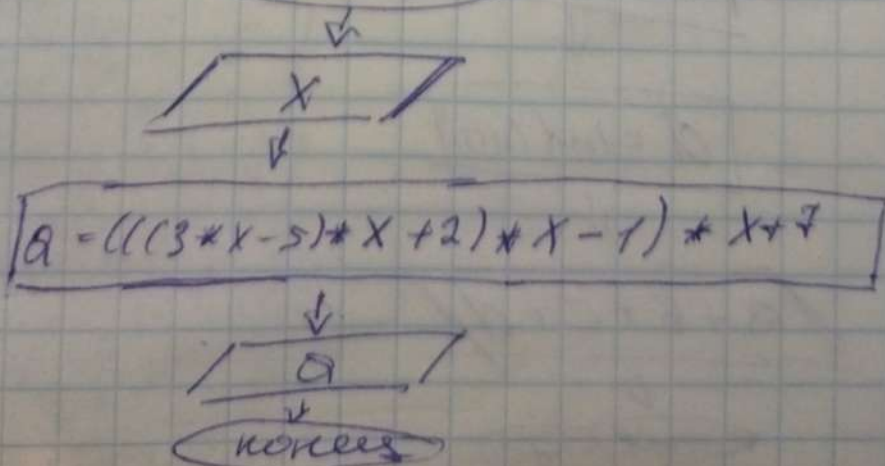 X
a = (((3*x-5)*X+2)*X-1)*X+7
a
конец